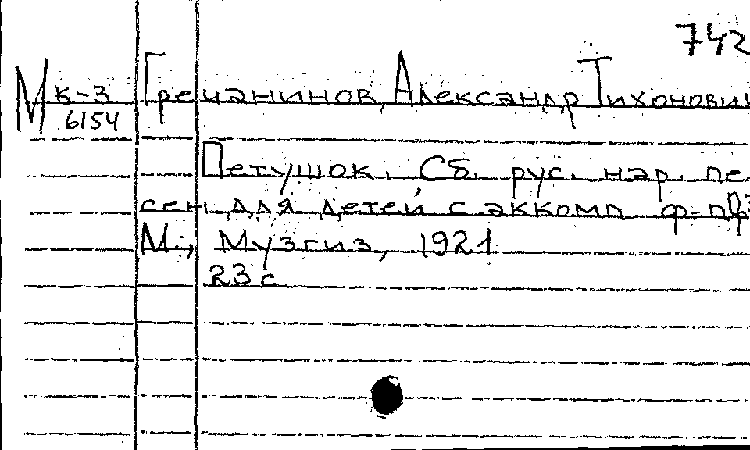 742
Мк-3 Гречанинов, Александр Тихонович
6154
Петушок. Сб. рус. нар. пе-
сен для детей с аккомп. ф-п
М., Музгиз, 1921
23 с